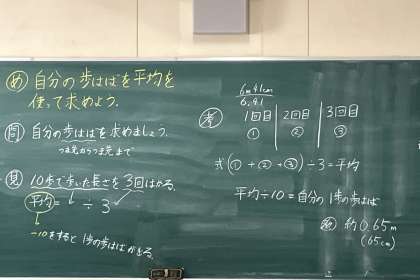 め 自分の歩はばを平均を
使って求めよう.
問 自分の歩はばを求めましょう.
つま先からつま先まで
見 10歩で歩いた長さを3回はかる.
平均= ÷ 3
÷10をすると 1歩の歩はばがわかる.
6m41cm
6.41
考 1回目 2回目 3回目
① ② ③
式 (① + ② + ③) ÷ 3 = 平均
平均÷10 = 自分の1歩の歩はば
約0.65m
(65cm)